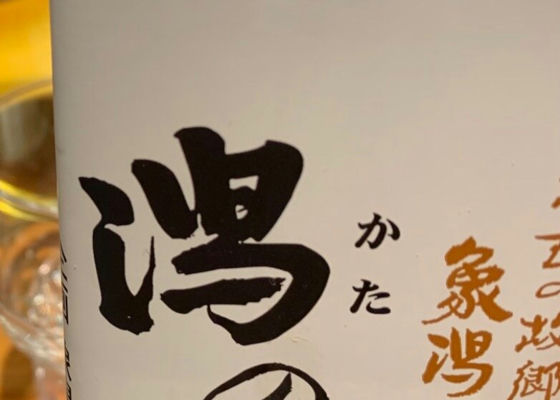 の故郷
象潟
かた
潟の